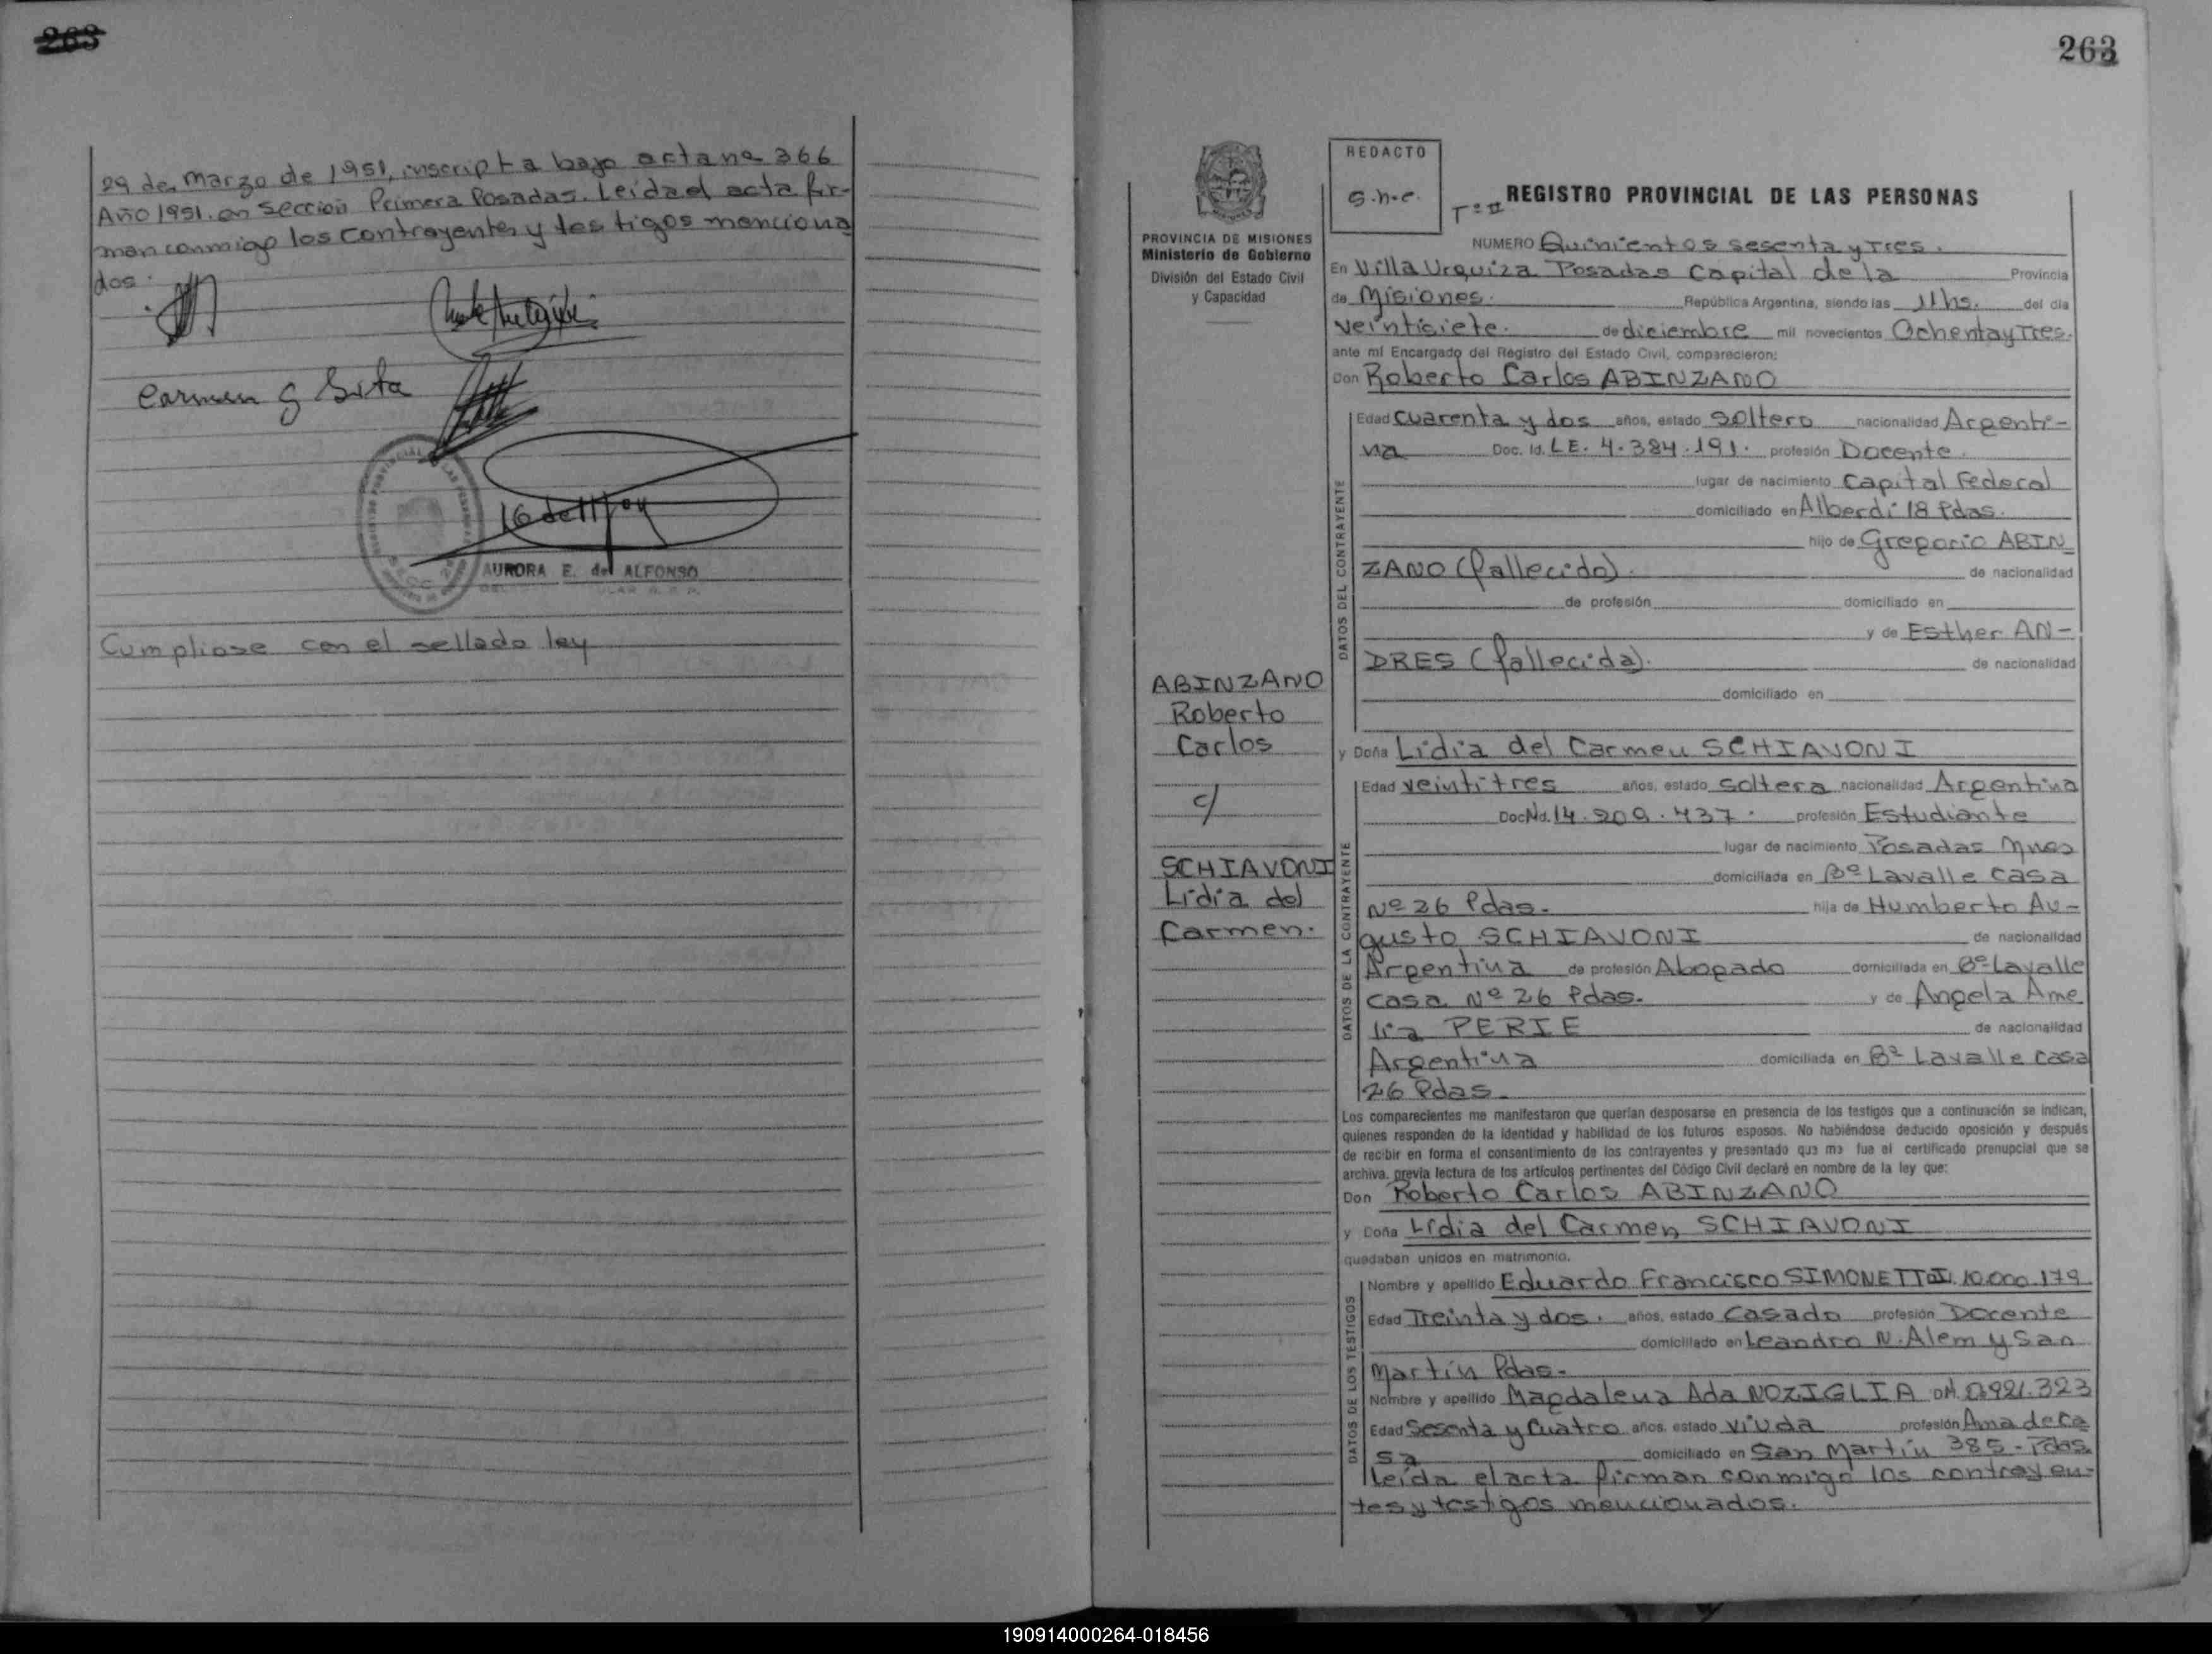 263
29 de, Marzo de 1951, inscripta bajo acta nº 366
Año 1951. en Sección Primera Posadas. Leída el acta fir-
man conmigo los contrayentes y testigos menciona
dos.
Carmen G Sita
AURORA E. de ALFONSO
Cumpliose con el sellado ley
263
REDACTO
PROVINCIA DE MISIONES
Ministerio de Gobierno
División del Estado Civil
y Capacidad
Tº II REGISTRO PROVINCIAL DE LAS PERSONAS
NUMERO Quinientos sesenta y Tres.
En Villa Urquiza Posadas Capital de la Provincia
de Misiones. República Argentina, siendo las 11hs. del día
veintisiete. de diciembre mil novecientos Ochenta y Tres.
ante mí Encargado del Registro del Estado Civil, comparecieron:
Don Roberto Carlos ABINZANO
DATOS DEL CONTRAYENTE
Edad cuarenta y dos años, estado soltero nacionalidad Argenti-
na Doc. Id. L.E. 4.384.191. profesión Docente
lugar de nacimiento Capital Federal
domiciliado en Alberdi 18 Pdas.
hijo de Gregorio ABIN
ZANO (fallecido). de nacionalidad
de profesión domiciliado en
y de Esther AN-
DRES (fallecida). de nacionalidad
domiciliado en
ABINZANO
Roberto
Carlos
c/
SCHIAVONI
Lidia del
Carmen.
y Doña Lidia del Carmen SCHIAVONI
DATOS DE LA CONTRAYENTE
Edad veintitres años, estado soltera nacionalidad Argentina
Doc Nd. 14.209.437. profesión Estudiante
lugar de nacimiento Posadas Mnes
domiciliada en Bº Lavalle casa
Nº 26 Pdas. hija de Humberto Au-
gusto SCHIAVONI de nacionalidad
Argentina de profesión Abogado domiciliada en Bº Lavalle
casa Nº 26 Pdas. y de Angela Ame
lia PERIE de nacionalidad
Argentina domiciliada en Bº Lavalle casa
26 Pdas.
Los comparecientes me manifestaron que querían desposarse en presencia de los testigos que a continuación se indican,
quienes responden de la identidad y habilidad de los futuros esposos. No habiéndose deducido oposición y después
de recibir en forma el consentimiento de los contrayentes y presentado que me fue el certificado prenupcial que se
archiva, previa lectura de los artículos pertinentes del Código Civil declaré en nombre de la ley que:
Don Roberto Carlos ABINZANO
y Doña Lidia del Carmen SCHIAVONI
quedaban unidos en matrimonio.
DATOS DE LOS TESTIGOS
Nombre y apellido Eduardo Francisco SIMONETTI 10.000.179
Edad Treinta y dos. años, estado Casado profesión Docente
domiciliado en Leandro N. Alem y San
Martín Pdas.
Nombre y apellido Magdalena Ada NOZIGLIA
Edad Sesenta y Cuatro años, estado viuda profesión Ama de ca
sa domiciliado en San Martín 385 - Pdas.
Leída el acta firman conmigo los contrayen-
tes y testigos mencionados.
190914000264-018456